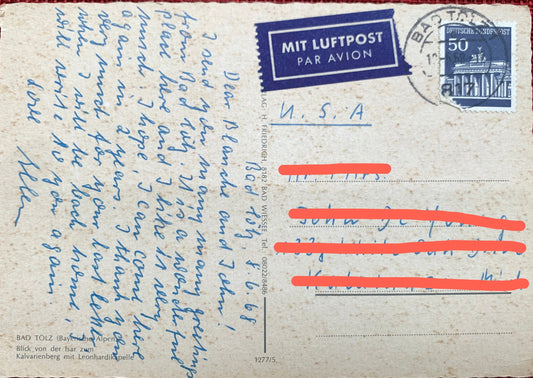 Bad Tölz 8.6.68
Dear Blanche and John!
I send you many many greetings
from Bad Tölz. It is a wonderful
place here and I like it very
much. I hope, I can come here
again in 2 years. I thank you
very much for your last letter.
When I will be back home, I
will write to you again.
Love
Ellen
MIT LUFTPOST
PAR AVION
BAD TÖLZ
DEUTSCHE BUNDESPOST
50
U.S.A
AG. H. FRIEDRICH, 8182 BAD WIESSEE Tel. 08022
BAD TÖLZ (Bayerische Alpen)
Blick von der Isar zum
Kalvarienberg mit Leonhardikapelle
1277/5